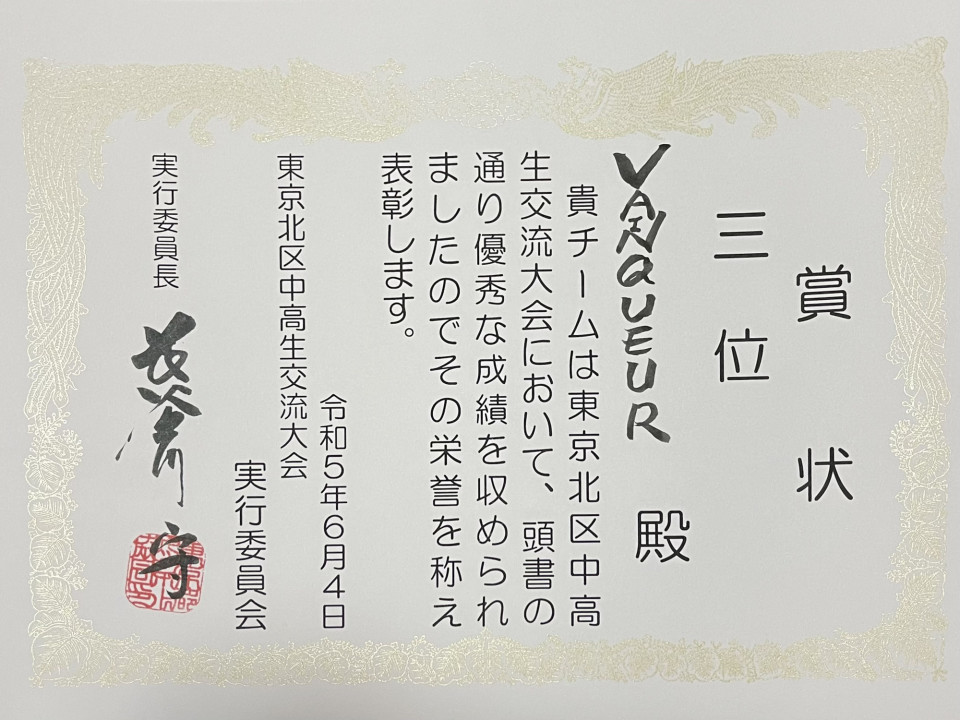 賞状
三位
VANQUEUR 殿
貴チームは東京北区中高
生交流大会において、頭書の
通り優秀な成績を収められ
ましたのでその栄誉を称え
表彰します。
令和5年6月4日
東京北区中高生交流大会
実行委員会
実行委員長
守